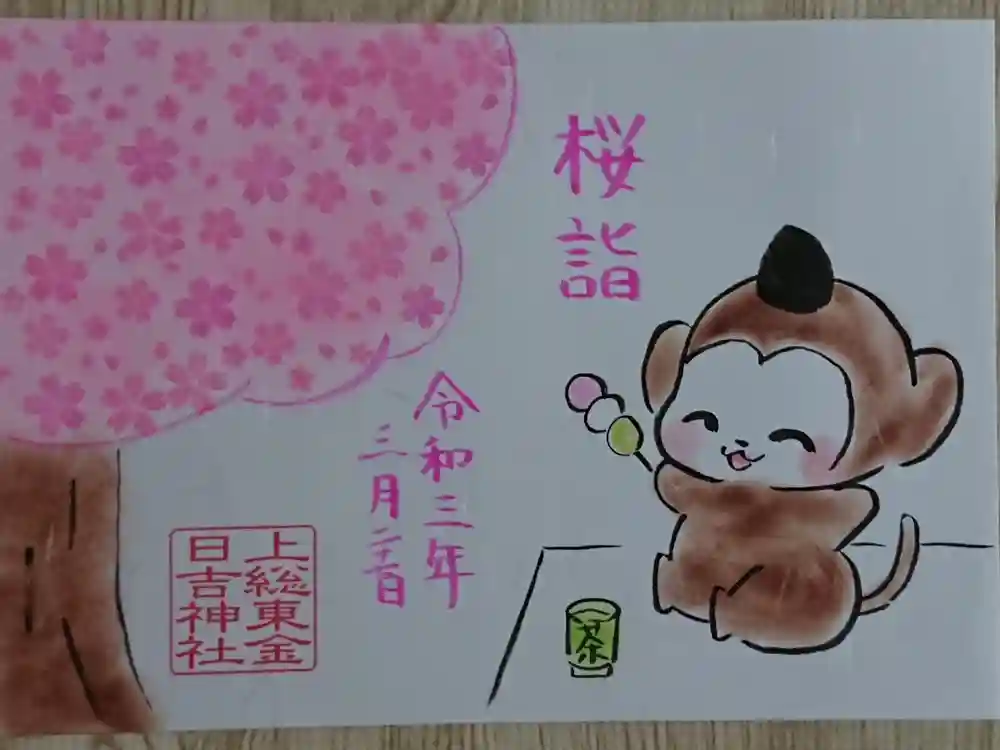 桜詣
令和三年
三月二十日
上総東金
日吉神社
茶